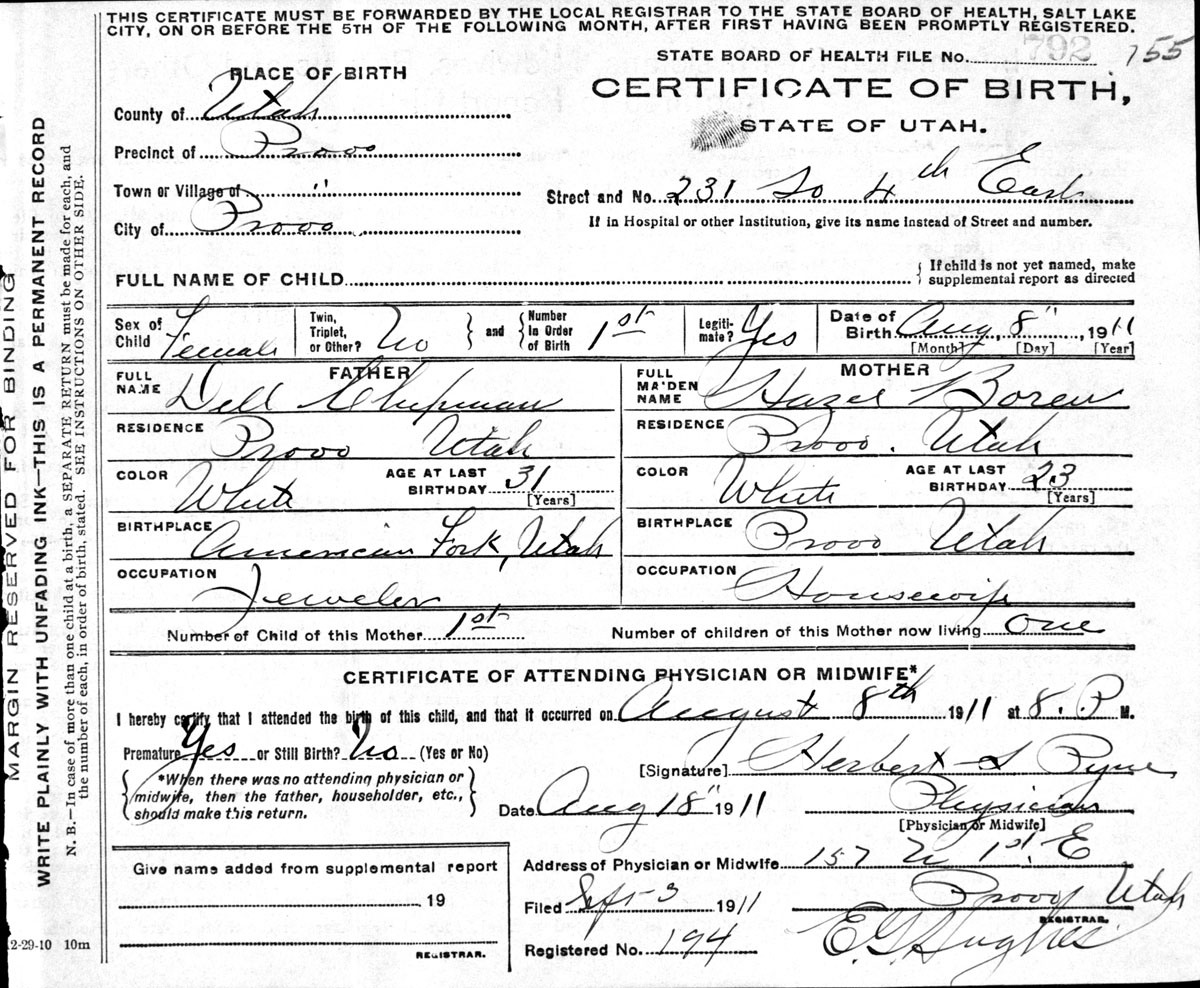 THIS CERTIFICATE MUST BE FORWARDED BY THE LOCAL REGISTRAR TO THE STATE BOARD OF HEALTH, SALT LAKE
CITY, ON OR BEFORE THE 5TH OF THE FOLLOWING MONTH, AFTER FIRST HAVING BEEN PROMPTLY REGISTERED.
STATE BOARD OF HEALTH FILE No. 792 155
PLACE OF BIRTH
CERTIFICATE OF BIRTH,
STATE OF UTAH.
County of Utah
Precinct of Provo
Town or Village of "
City of Provo
Street and No. 231 So 4th East
If in Hospital or other Institution, give its name instead of Street and number.
FULL NAME OF CHILD
If child is not yet named, make
supplemental report as directed
Sex of Child Female
Twin, Triplet, or Other? No
and Number In Order of Birth 1st
Legiti-mate? Yes
Date of Birth Aug 8", 1911
[Month] [Day] [Year]
FATHER
FULL NAME Dell Chipman
RESIDENCE Provo Utah
COLOR White
AGE AT LAST BIRTHDAY 31
[Years]
BIRTHPLACE American Fork, Utah
OCCUPATION Jeweler
MOTHER
FULL MAIDEN NAME Hazel Boren
RESIDENCE Provo. Utah
COLOR White
AGE AT LAST BIRTHDAY 23
[Years]
BIRTHPLACE Provo Utah
OCCUPATION Housewife
Number of Child of this Mother 1st
Number of children of this Mother now living One
CERTIFICATE OF ATTENDING PHYSICIAN OR MIDWIFE*
I hereby certify that I attended the birth of this child, and that it occurred on August 8th 1911 at 8. P M.
Premature Yes or Still Birth? No (Yes or No)
*When there was no attending physician or
midwife, then the father, householder, etc.,
should make this return.
[Signature] Herbert S Pyne
Date Aug 18" 1911
Physician
[Physician or Midwife]
Give name added from supplemental report
19
REGISTRAR.
Address of Physician or Midwife 157 N 1st. E
Provo, Utah
Filed Sept 3 1911
REGISTRAR.
E.G. Hughes
Registered No. 194
MARGIN RESERVED FOR BINDING
WRITE PLAINLY WITH UNFADING INK—THIS IS A PERMANENT RECORD
N. B.—In case of more than one child at a birth, a SEPARATE RETURN must be made for each, and
the number of each, in order of birth, stated. SEE INSTRUCTIONS ON OTHER SIDE.
2-29-10 10m